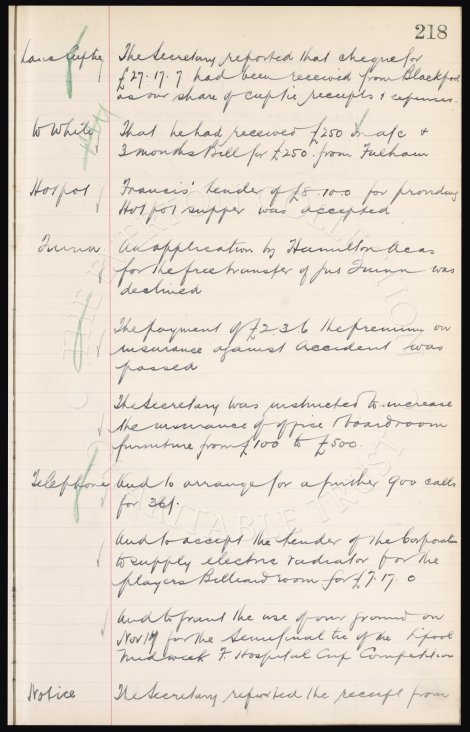 218
Lancs Cuptie The Secretary reported that cheque for
£27.17.7 had been received from Blackpool
as our share of cuptie receipts & expenses.
W White That he had received £250 on a/c &
3 months Bill for £250 from Fulham
Hotpot Francis' tender of £8.10.0 for providing
Hotpot supper was accepted
Quinn An application by Hamilton Acas
for the free transfer of Jas Quinn was
declined
The payment of £2.3.6 the premium on
insurance against accident was
passed
The Secretary was instructed to increase
the insurance of office & boardroom
furniture from £100 to £500.
Telephone And to arrange for a further 900 calls
for 36/-
And to accept the tender of the Corporation
to supply electric radiator for the
players Billiard room for £7.17.0
And to grant the use of our ground on
Nov 19 for the Semifinal tie of the Lpool
Midweek F. Hospital Cup Competition
Notice The Secretary reported the receipt from